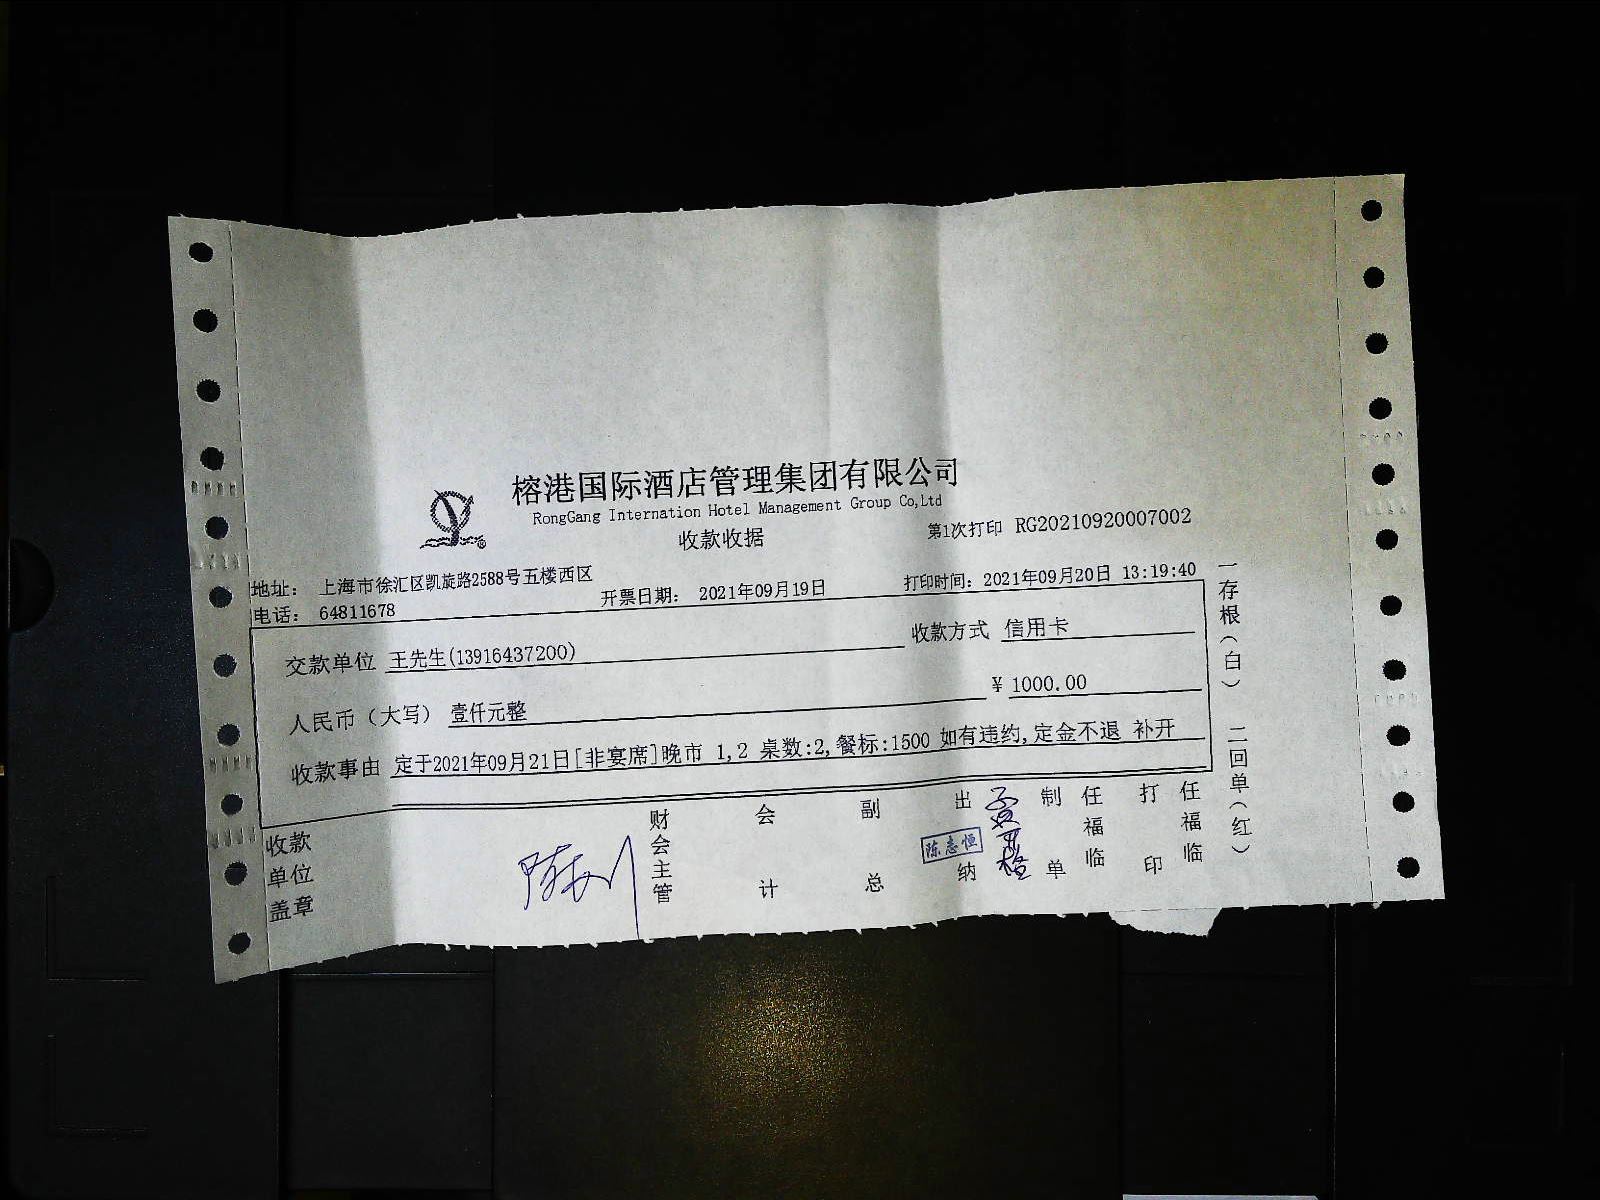 榕港国际酒店管理集团有限公司
RongGang Internation Hotel Management Group Co,Ltd
收款收据
第1次打印 RG20210920007002
地址： 上海市徐汇区凯旋路2588号五楼西区
电话： 64811678
开票日期： 2021年09月19日
打印时间：2021年09月20日 13:19:40
交款单位 王先生(13916437200)
收款方式 信用卡
人民币（大写） 壹仟元整
¥ 1000.00
收款事由 定于2021年09月21日[非宴席]晚市 1,2 桌数:2,餐标:1500 如有违约,定金不退 补开
收款单位盖章
财会主管
会计
副总
出纳
陈志恒
制单
任福临
打印
任福临
一存根（白） 二回单（红）